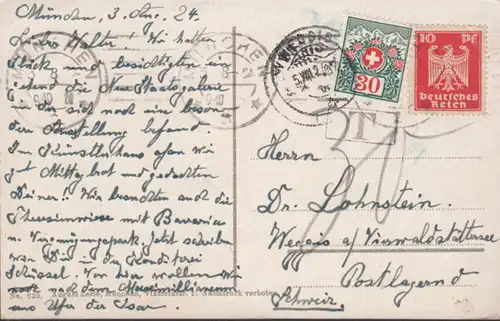 München, 3. Aug. 24.
Lieber Walter! Wir hatten
Glück und besichtigten ein
gehend die Neue Staatsgalerie
in der sich noch eine besondere
Ausstellung befand
Im Künstlerhaus aßen wir
zu Mittag und gedachten
Deiner! Wir wandten auch die
Theresienwiese mit Bavaria
u. Vergnügungspark. Jetzt schreiben
wir Dir in der Konditorei
Schüssel. Von hier wollen wir
noch nach dem Maximilianeum
ans Ufer der Isar.
No. 525. August Zerle, München, Nachdruck verboten
MÜNCHEN
WEGGIS
30
10 Pf
Deutsches
Reich
T
30
Herrn
Dr. Lohnstein.
Weggis a/Vierwaldstättersee
Postlagernd
Schweiz.